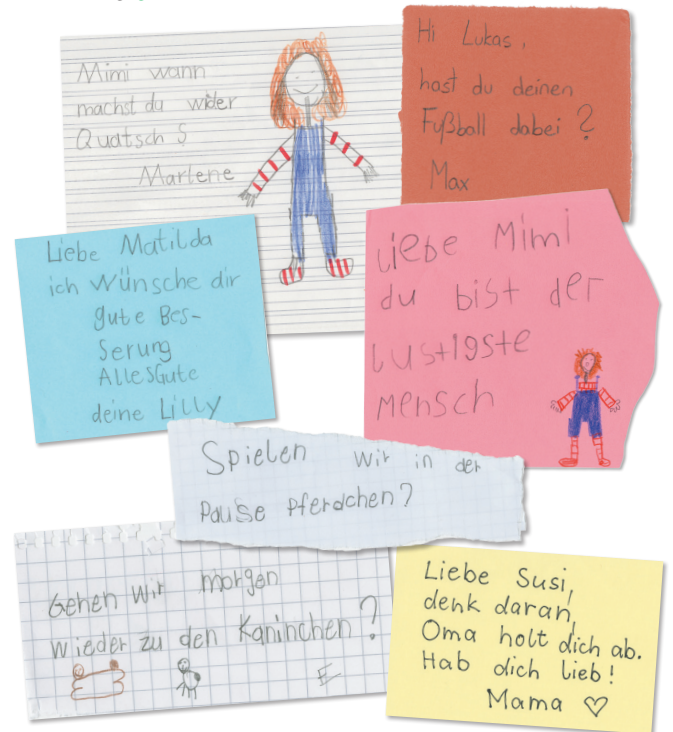 Mimi wann
machst du wider
Quatsch ?
Marlene
Hi Lukas,
hast du deinen
Fußball dabei ?
Max
Liebe Matilda
ich wünsche dir
gute Bes-
serung
Alles Gute
deine Lilly
Liebe Mimi
du bist der
lustigste
Mensch
Spielen wir in der
Pause Pferdchen?
Gehen wir morgen
wieder zu den Kaninchen ?
E
Liebe Susi,
denk daran,
Oma holt dich ab.
Hab dich lieb!
Mama ♡